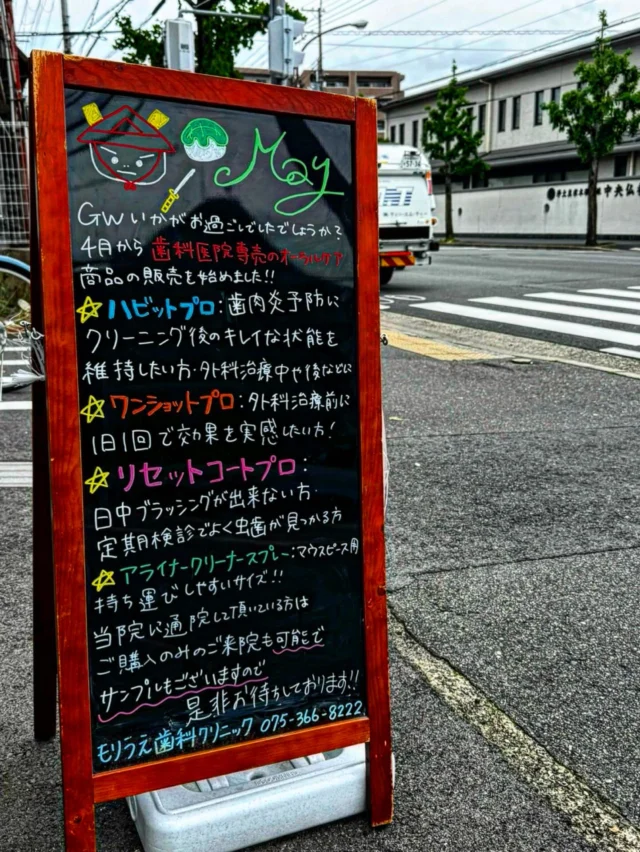 May
GWいかがお過ごしでしたでしょうか?
4月から歯科医院専売のオーラルケア
商品の販売を始めました!!
ハビットプロ:歯肉炎予防に
クリーニング後のキレイな状態を
維持したい方・外科治療中や後などに
ワンショットプロ:外科治療前に
1日1回で効果を実感したい方!
リセットコートプロ:
日中ブラッシングが出来ない方・
定期検診でよく虫歯が見つかる方
アライナークリーナースプレー:マウスピース用
持ち運びしやすいサイズ!!
当院に通院して頂いている方は
ご購入のみのご来院も可能で
サンプルもございますので
是非お待ちしております!!
モリうえ歯科クリニック 075-366-8222
中央仏